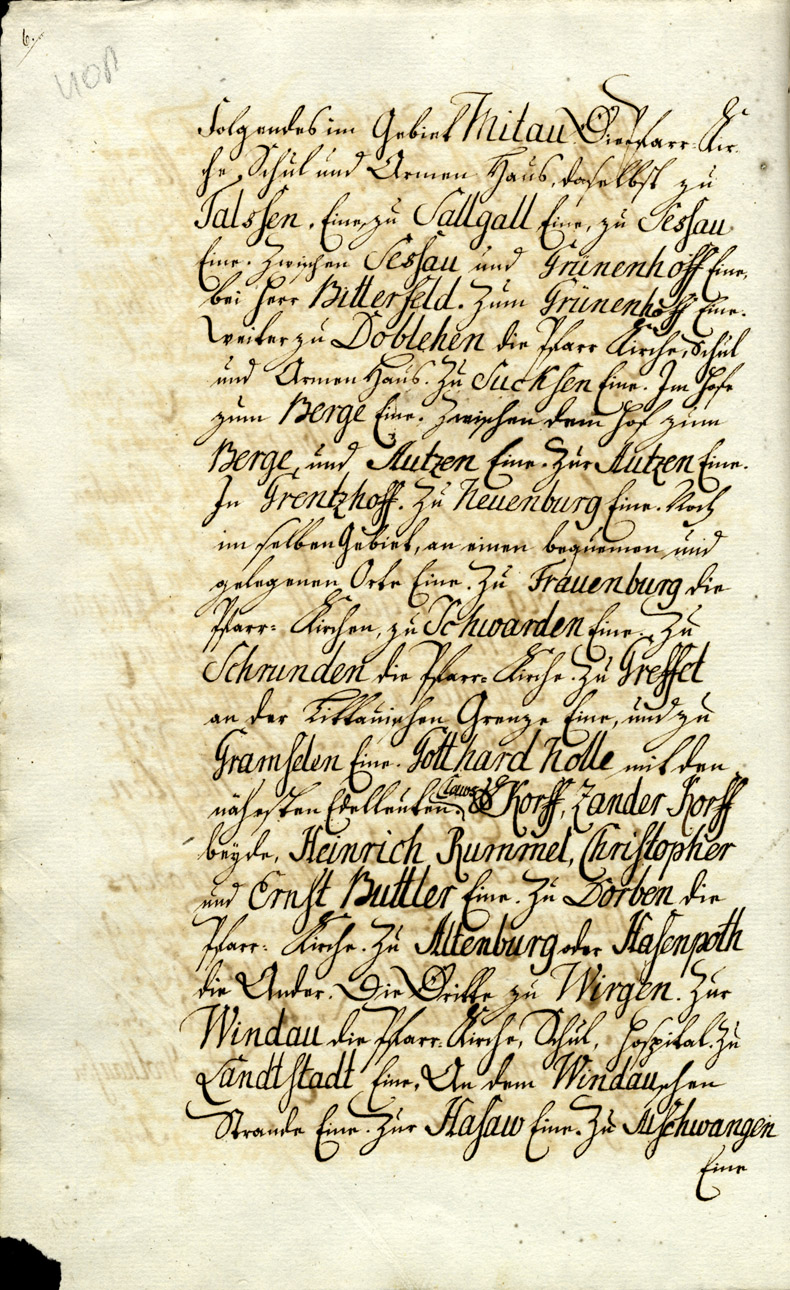 6.
Folgendes im Gebiet Mitau. Die Pfarr-Kir-
che, Schul und Armen Haus, daselbst zu
Talssen, Eine, zu Sallgall Eine, zu Sessau
Eine. Zwischen Sessau und Grünenhöff Eine,
bei Herr Bitterfeld. Zum Grünenhöff Eine.
Weiter zu Doblehen die Pfarr Kirche, Schul
und Armen Haus. Zu Sucksen Eine. Im Hofe
zum Berge Eine. Zwischen dem Hof zum
Berge, und Autzen Eine. Zur Autzen Eine.
In Grentzhoff. Zu Neuenburg Eine. Noch
im selben Gebiet, an einen bequemen und
gelegenen Orte Eine. Zu Frauenburg die
Pfarr- Kirchen, zu Schwarden Eine. Zu
Schrunden die Pfarr-Kirche. Zu Greffet
an der Littauischen Grenze Eine, und zu
Gramsden Eine. Gotthard Nolle mit den
nähesten Edelleuten, Claws Korff, Zander Korff
beyde, Heinrich Rummel, Christopher
und Ernst Buttler Eine. Zu Dorben die
Pfarr- Kirche. Zu Altenburg oder Hasenpoth
die Ander. Die Dritte zu Wirgen. Zur
Windau die Pfarr-Kirche, Schul, Hospital. Zu
Landtstadt Eine, An dem Windauschen
Strande Eine. Zur Hasaw Eine. Zu Alschwangen
Eine